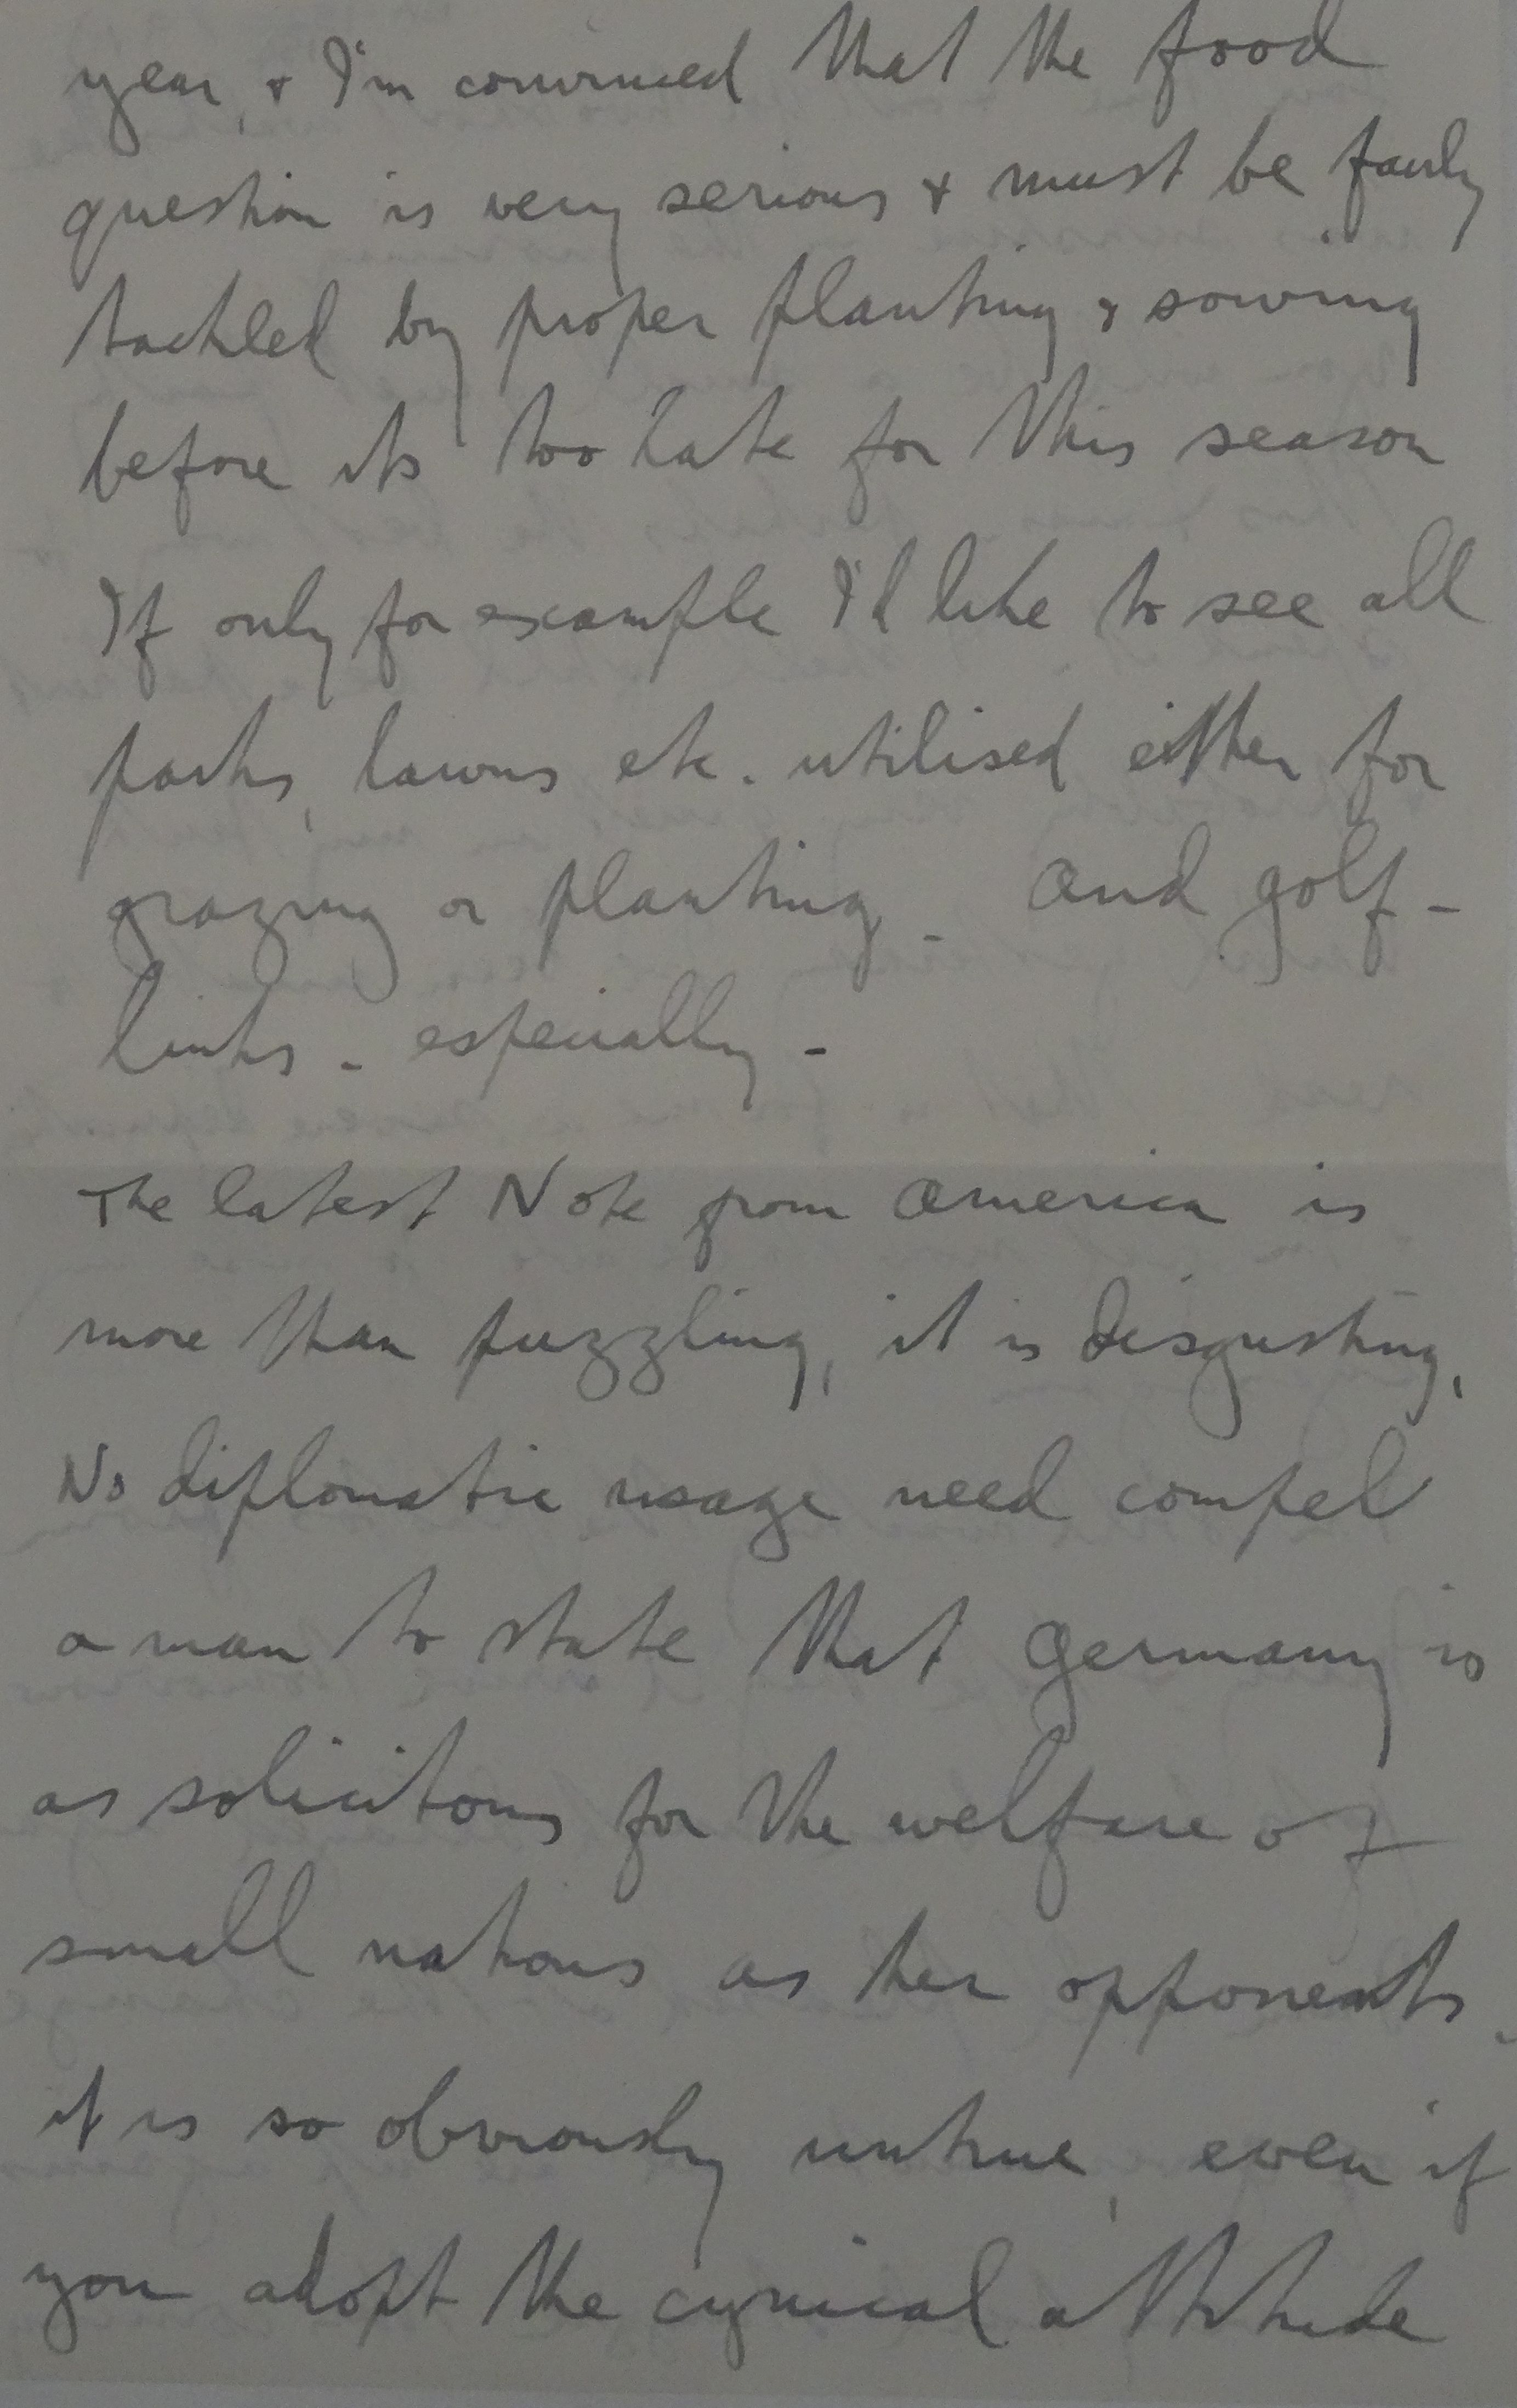 year, & I'm convinced that the food
question is very serious & must be fairly
tackled by proper planting & sowing
before its too late for this season
If only for example I'd like to see all
parks, lawns etc. utilised either for
grazing or planting - And golf-
links - especially -
The latest Note from America is
more than puzzling, it is disgusting,
No diplomatic usage need compel
a man to state that Germany is
as solicitous for the welfare of
small nations as her opponents.
it is so obviously untrue, even if
you adopt the cynical attitude